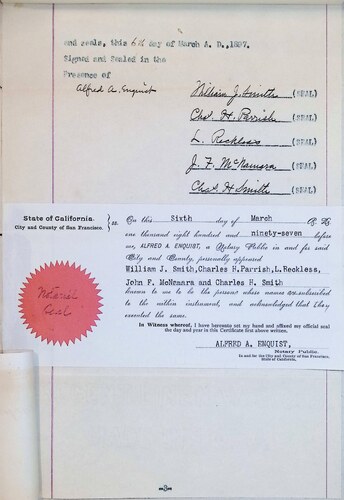 and seals, this 6th day of March A. D., 1897.
Signed and Sealed in the
Presence of
Alfred A. Enquist
William J. Smith (SEAL)
Chas. H. Parrish (SEAL)
L. Reckless (SEAL)
J. F. McNamara (SEAL)
Chas. H. Smith (SEAL)
State of California.
City and County of San Francisco. } ss.
On this Sixth day of March A. D.
one thousand eight hundred and ninety-seven before
me, ALFRED A. ENQUIST, a Notary Public in and for said
City and County, personally appeared
William J. Smith, Charles H. Parrish, L. Reckless,
John F. McNmaara and Charles H. Smith
known to me to be the persons whose names are subscribed
to the within instrument, and acknowledged that they
executed the same.
In Witness whereof, I have hereunto set my hand and affixed my official seal
the day and year in this Certificate first above written.
ALFRED A. ENQUIST,
Notary Public.
In and for the City and County of San Francisco,
State of California.
Notarial
Seal